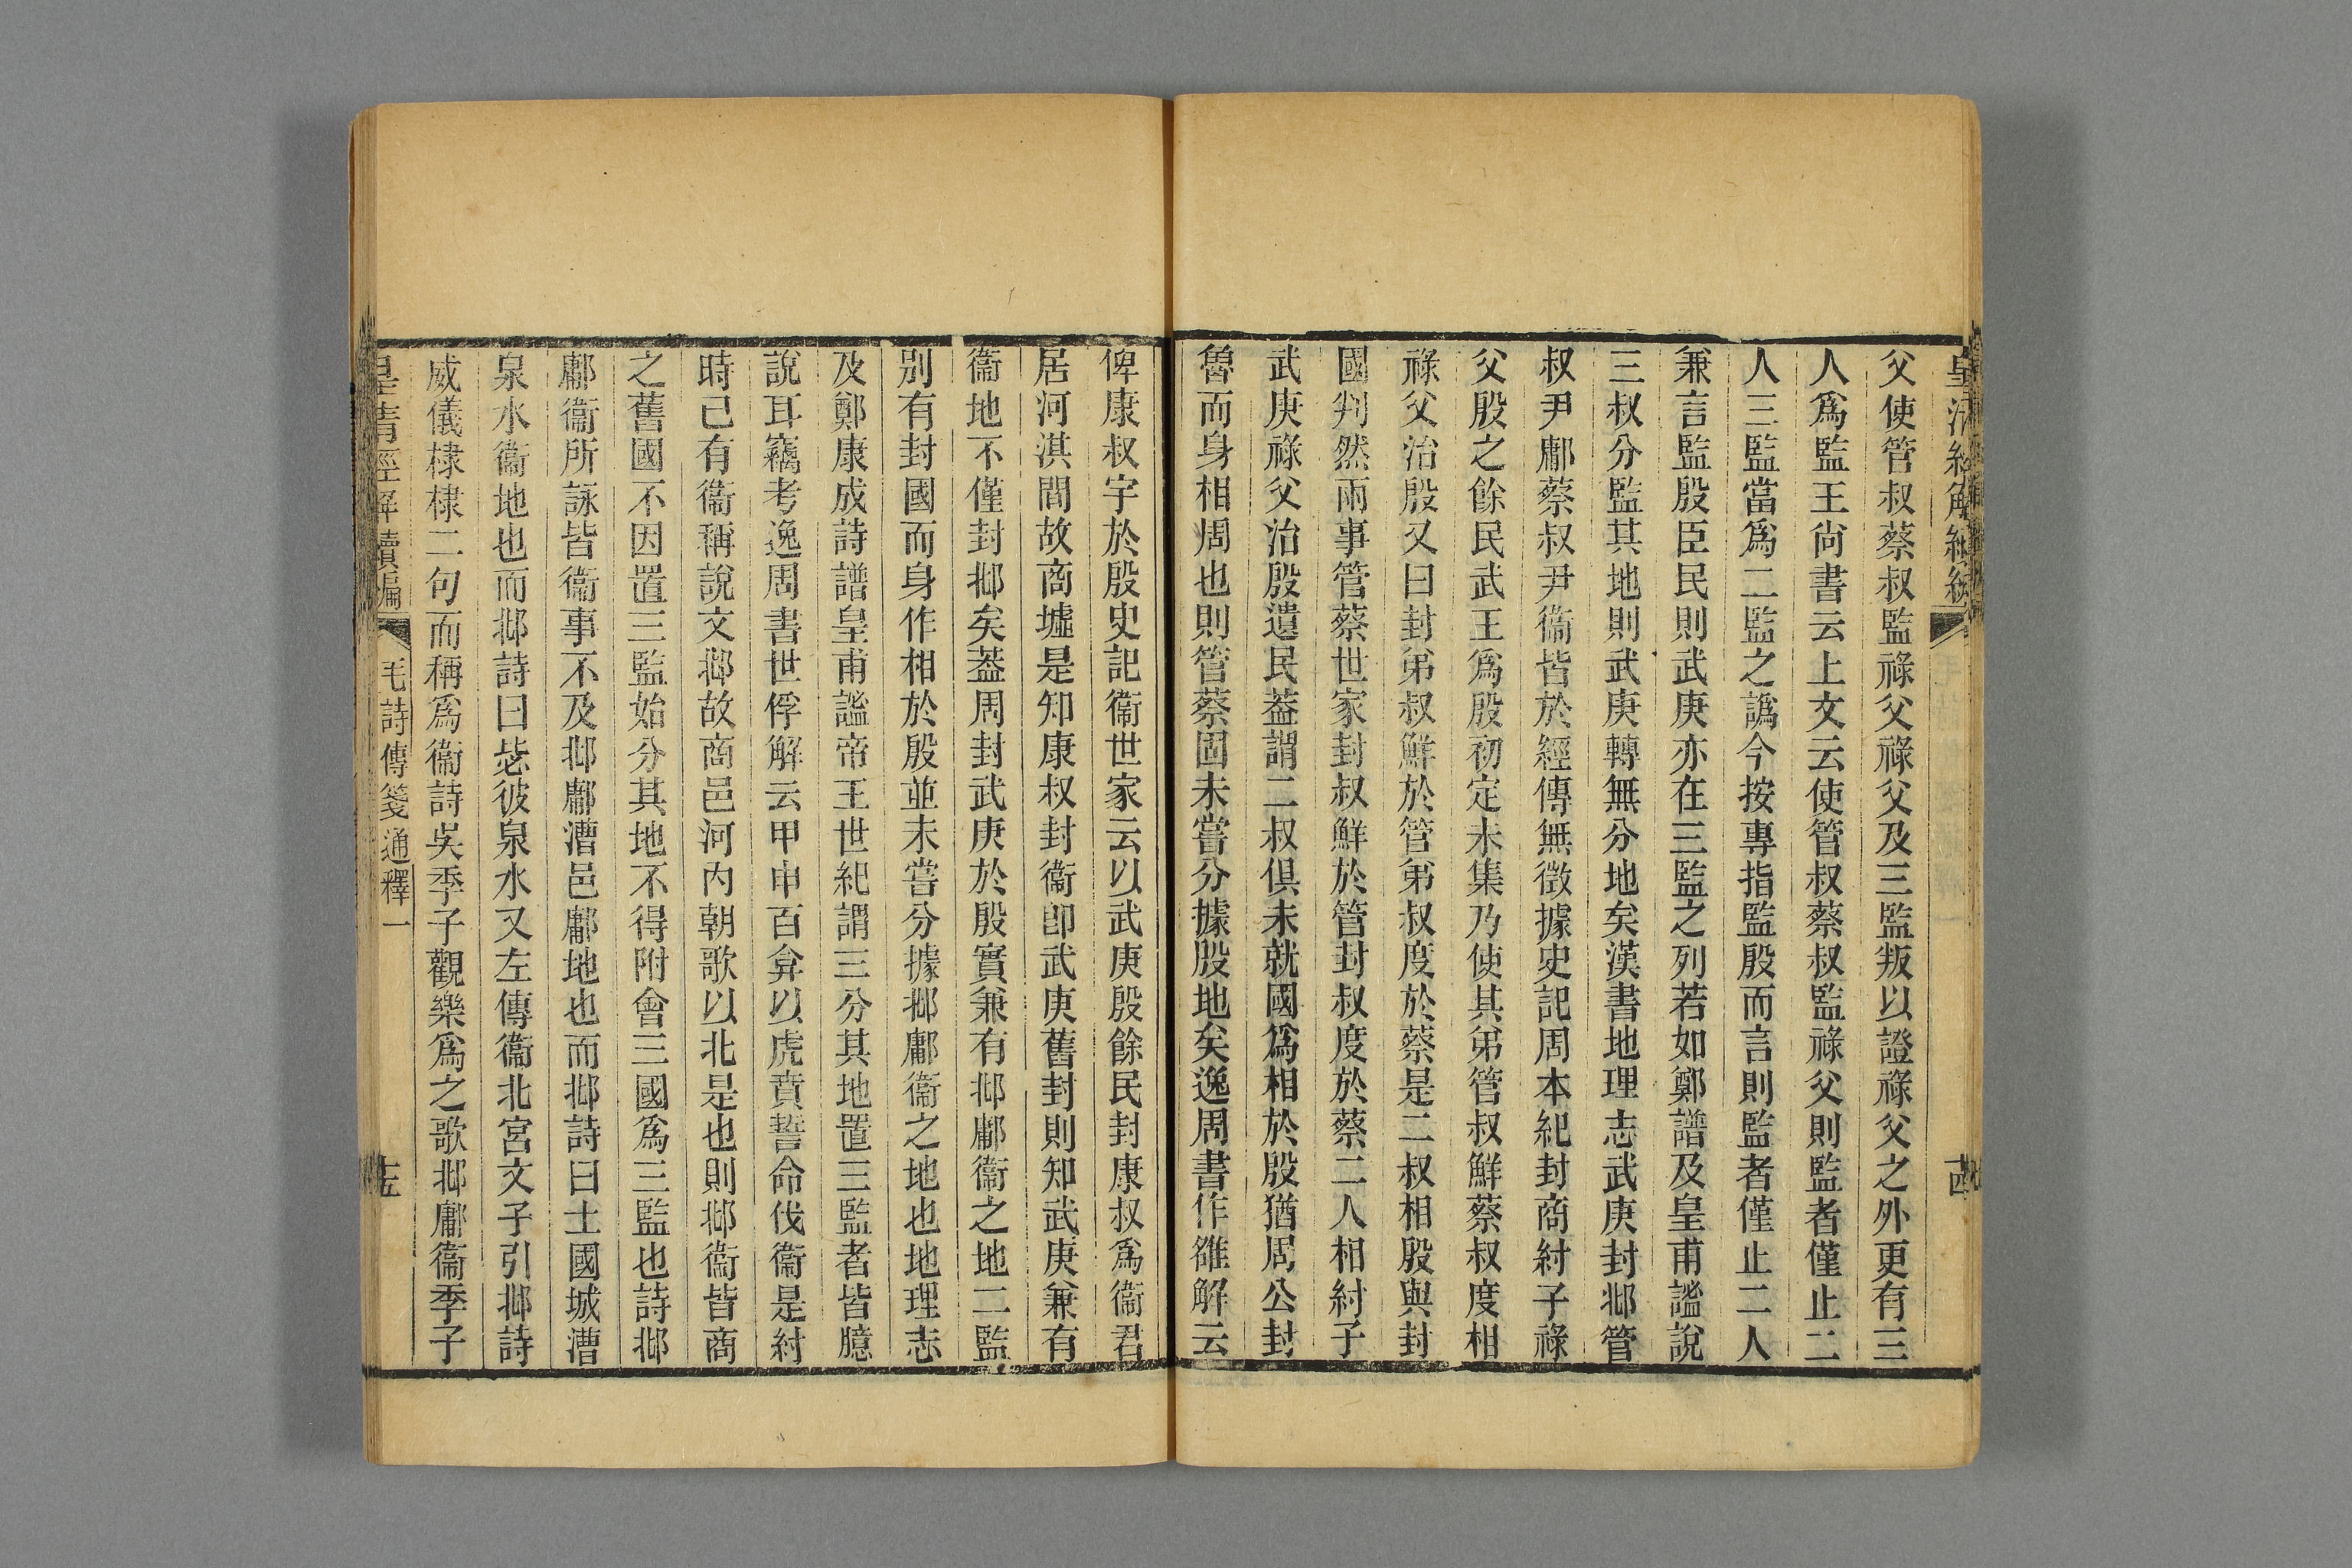 皇清經解續編
十四
父使管叔蔡叔監祿父祿父及三監叛以證祿父之外更有三
人爲監王尙書云上文云使管叔蔡叔監祿父則監者僅止二
人三監當爲二監之譌今按專指監殷而言則監者僅止二人
兼言監殷臣民則武庚亦在三監之列若如鄭譜及皇甫謐說
三叔分監其地則武庚轉無分地矣漢書地理志武庚封邶管
叔尹鄘蔡叔尹衞皆於經傳無徵據史記周本紀封商紂子祿
父殷之餘民武王爲殷初定未集乃使其弟管叔鮮蔡叔度相
祿父治殷又曰封弟叔鮮於管弟叔度於蔡是二叔相殷與封
國判然兩事管蔡世家封叔鮮於管封叔度於蔡二人相紂子
武庚祿父治殷遺民葢謂二叔俱未就國爲相於殷猶周公封
魯而身相周也則管蔡固未嘗分據殷地矣逸周書作雒解云
俾康叔宇於殷史記衞世家云以武庚殷餘民封康叔爲衞君
居河淇閒故商墟是知康叔封衞卽武庚舊封則知武庚兼有
衞地不僅封邶矣葢周封武庚於殷實兼有邶鄘衞之地二監
別有封國而身作相於殷並未嘗分據邶鄘衞之地也地理志
及鄭康成詩譜皇甫謐帝王世紀謂三分其地置三監者皆臆
說耳竊考逸周書世俘解云甲申百弇以虎賁誓命伐衞是紂
時已有衞稱說文邶故商邑河內朝歌以北是也則邶衞皆商
之舊國不因置三監始分其地不得附會三國爲三監也詩邶
鄘衞所詠皆衞事不及邶鄘漕邑鄘地也而邶詩曰土國城漕
泉水衞地也而邶詩曰毖彼泉水又左傳衞北宮文子引邶詩
威儀棣棣二句而稱爲衞詩吳季子觀樂爲之歌邶鄘衞季子
皇清經解續編
毛詩傳箋通釋一
十五